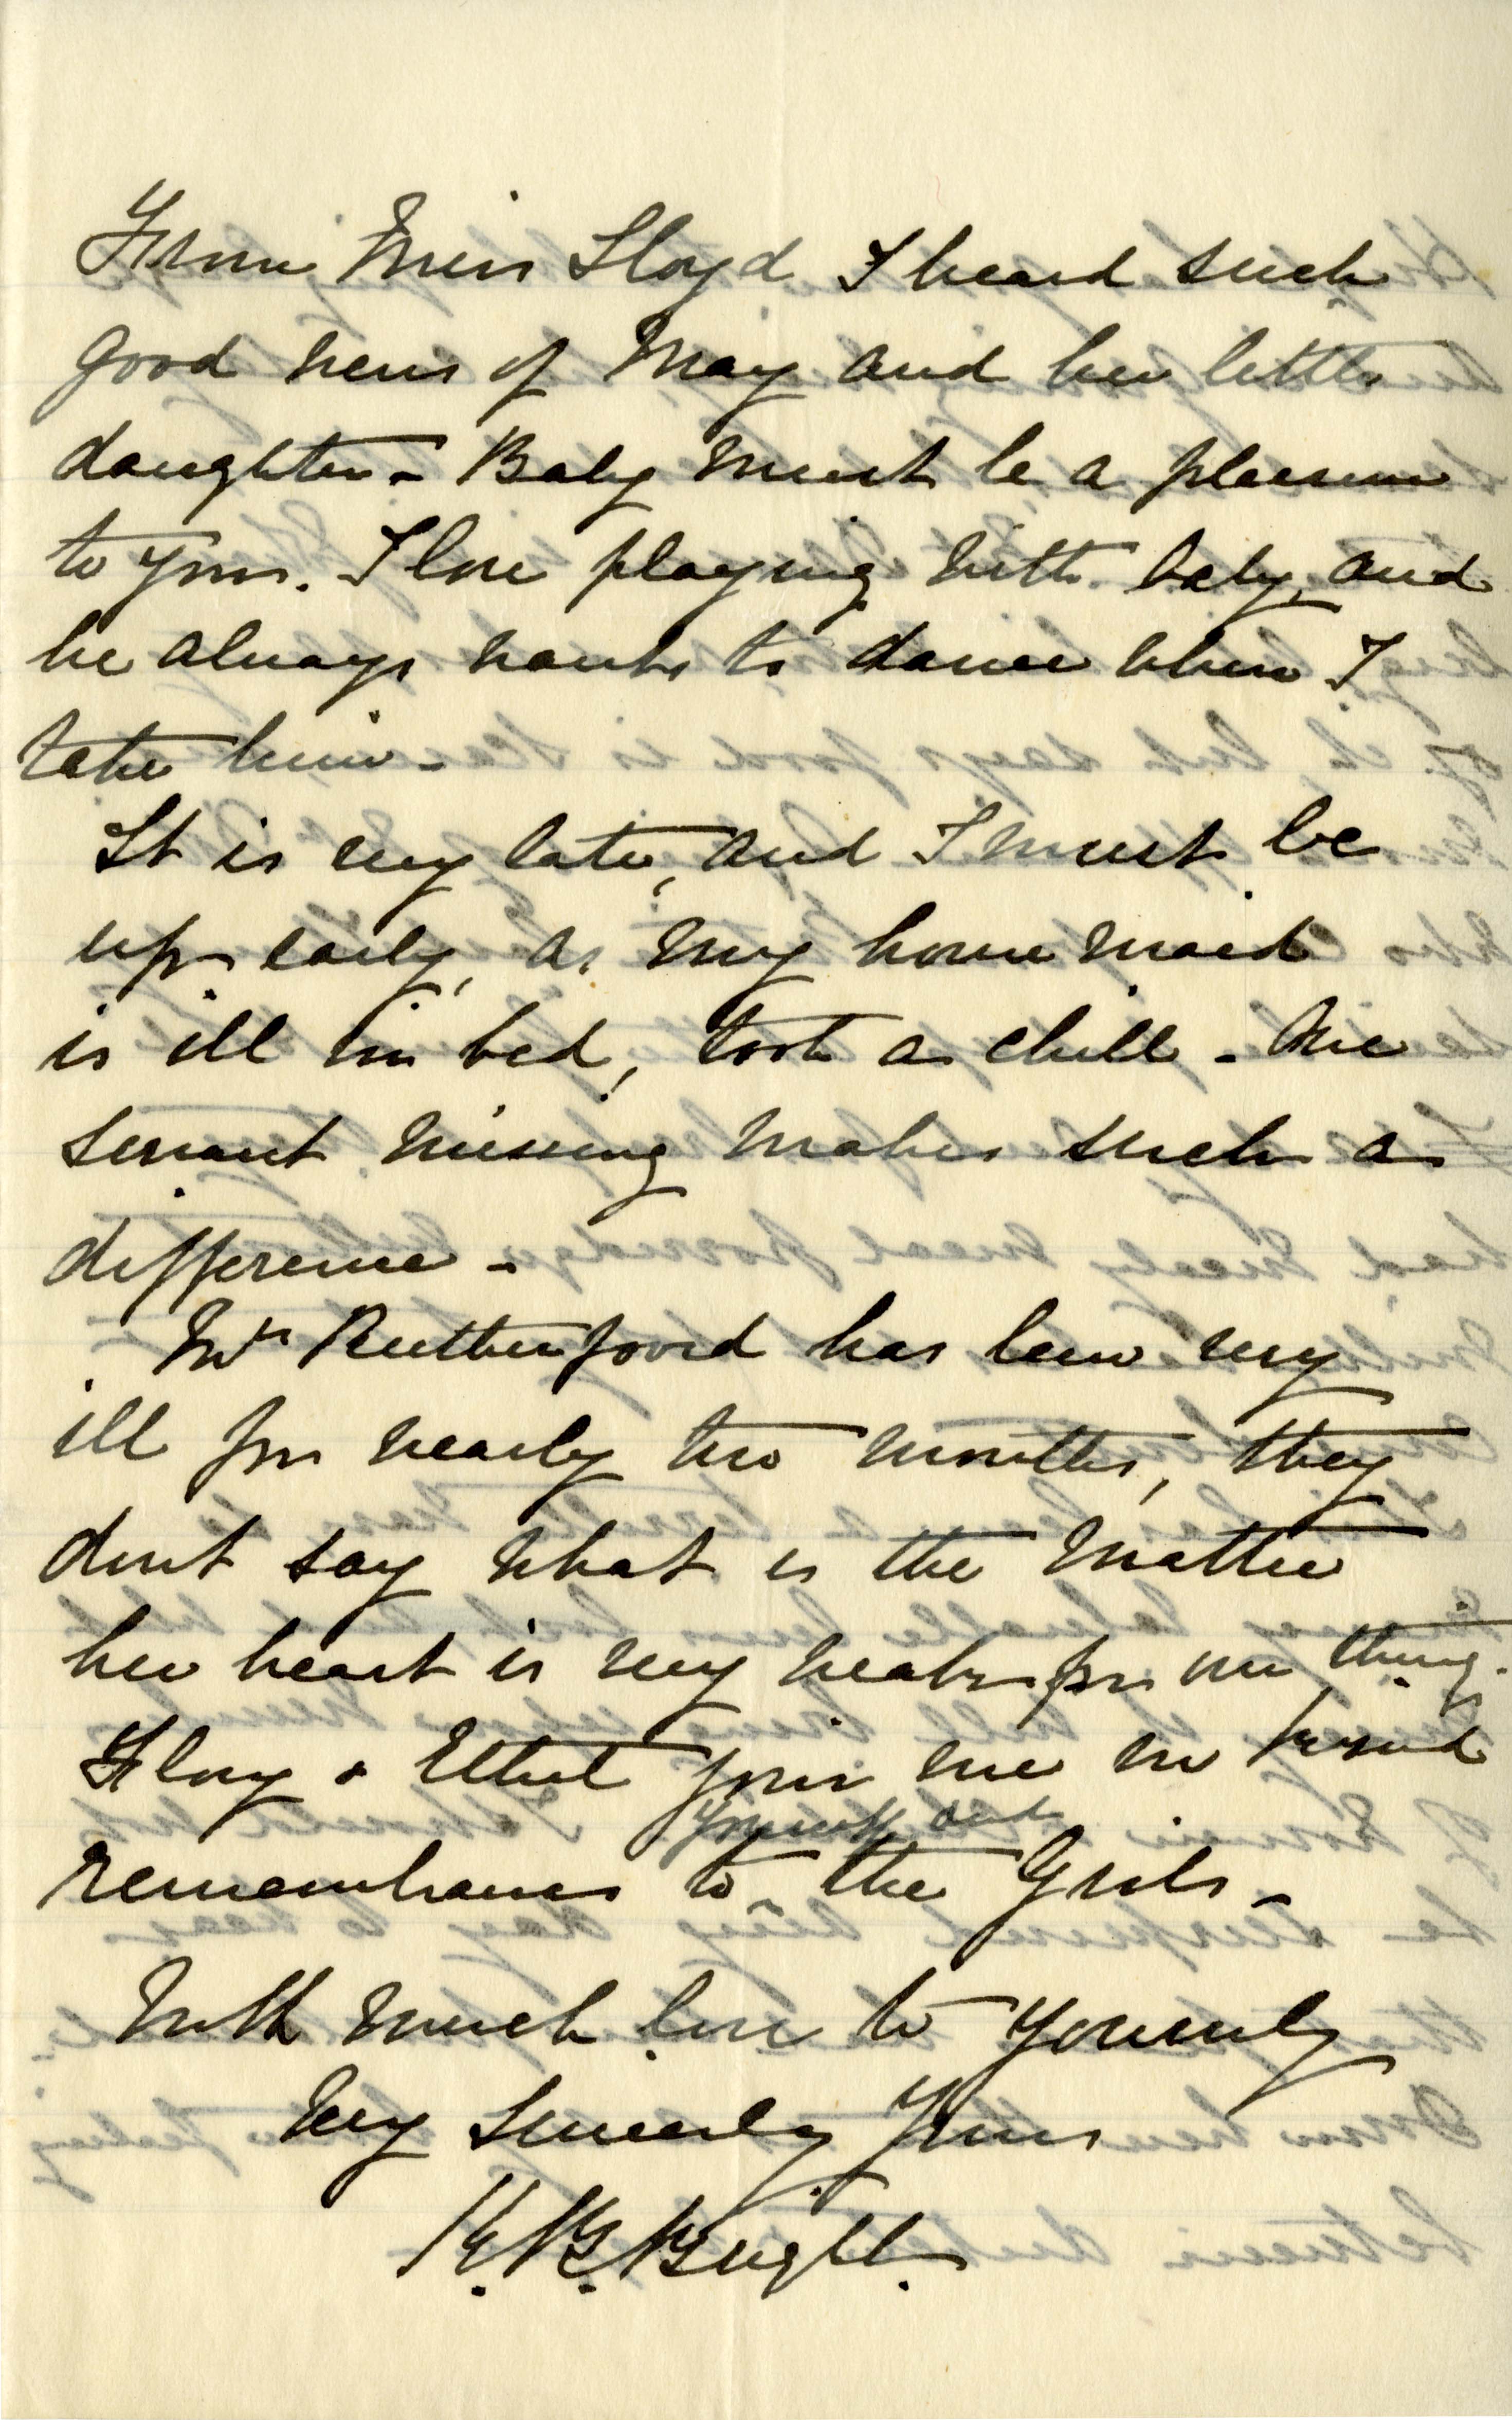 From Miss Lloyd I heard such
good news of May and her little
daughter - Baby must be a pleasure
to you. I love playing with baby, and
he always wants to dance when I
take him -
It is very late, and I must be
up early, as my house maid
is ill in bed, took a chill - One
servant missing makes such a
difference -
Mrs Rutherfoord has been very
ill for nearly two months, they
dont say what is the matter
her heart is very weak for one thing.
Flory & Ethel join me in kind
yourself and
remembrances to ^ the Girls -
With much love to yourself
Very Sincerely Yours
K. B. Bright.